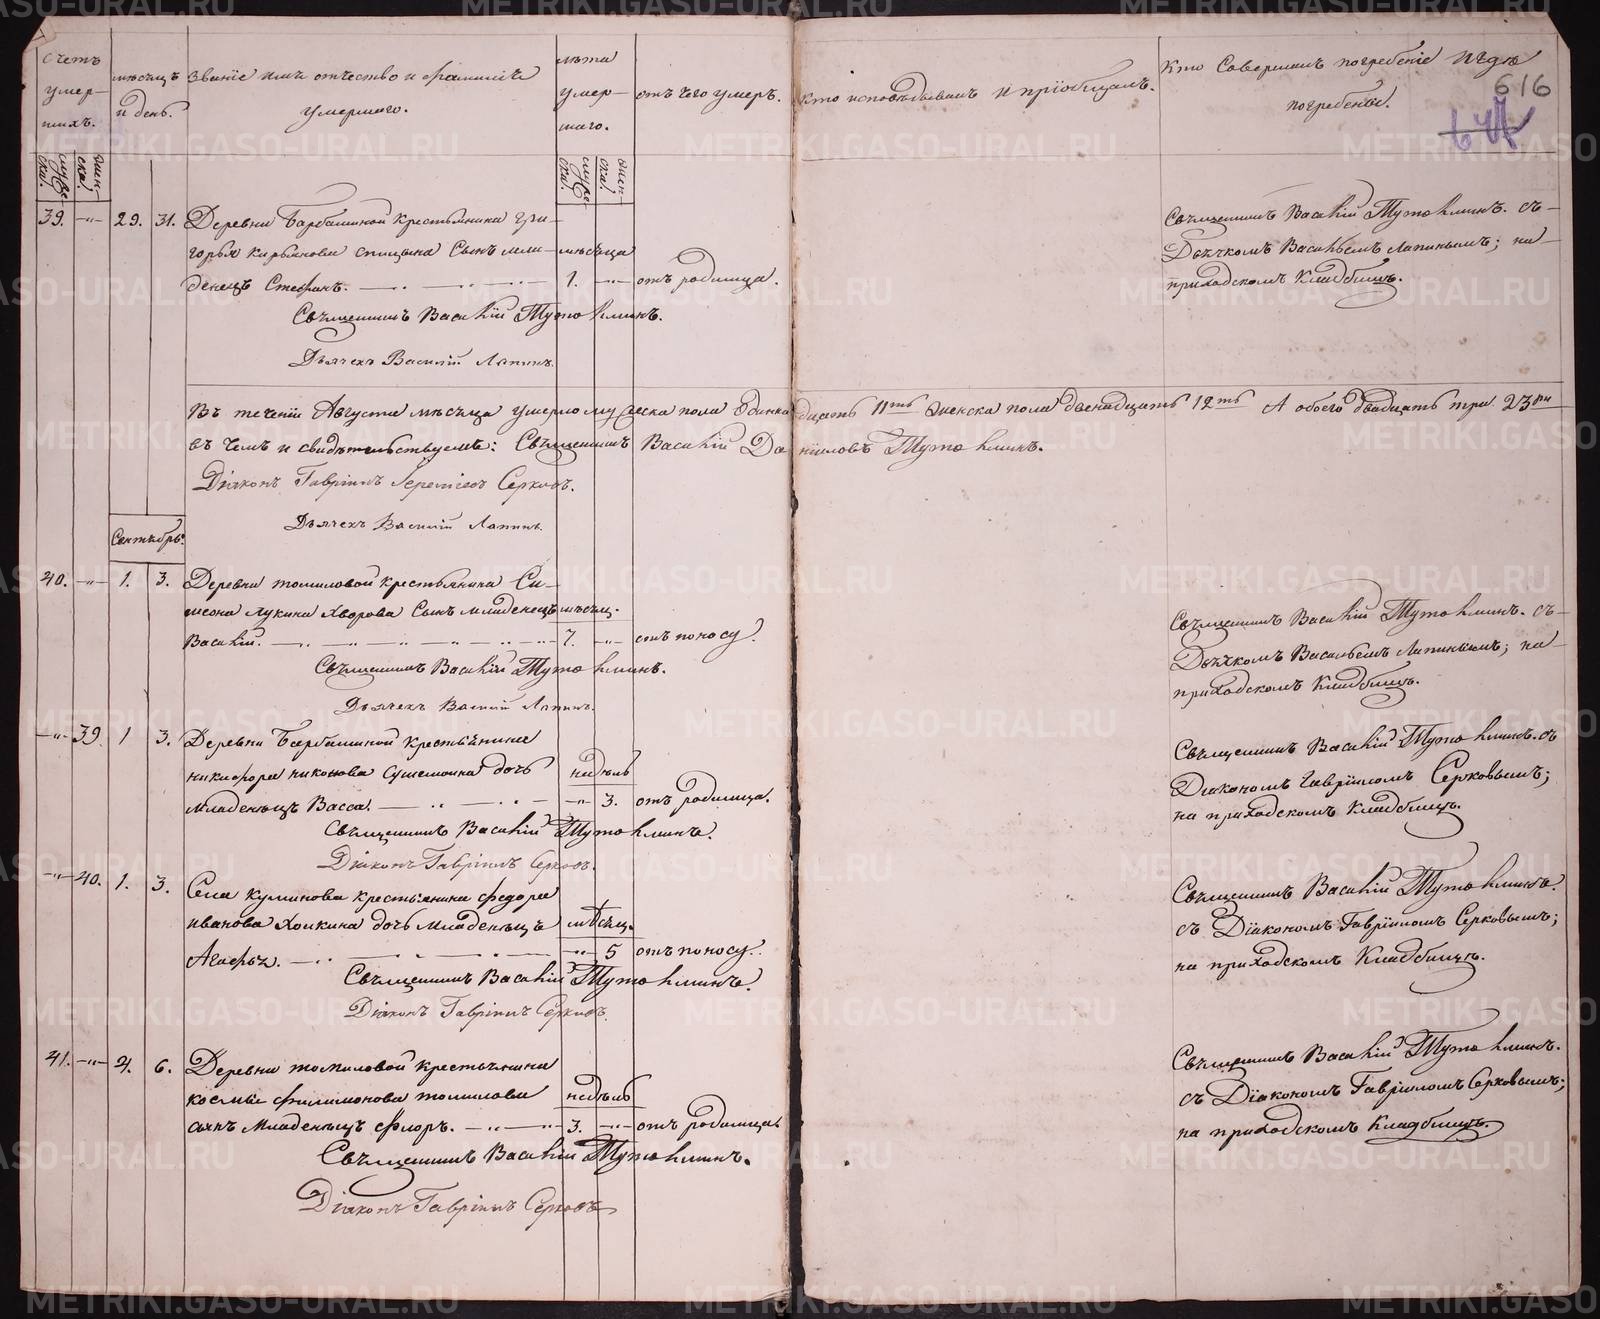 Счетъ умер-шихъ.
мѣсяцъ и день.
Званіе имя отчество и фамиліе умершаго.
лѣта умер-шаго.
отъ чего умеръ.
кто исповѣдывалъ и пріобщалъ.
Кто Совершалъ погребеніе и гдѣ погребены.
616
муже-ска.
жен-ска.
муже-ска.
жен-ска.
39. -"- 29. 31. Деревни Барбашиной крестьянина Гри-
горья Кирьянова Спицына Сынъ мла- мѣсяца
денецъ Стефанъ. 1. -"- отъ родимца.
Священникъ Василій Тутолминъ. съ-
Дьячкомъ Васильемъ Лапинымъ; на-
приходскомъ Кладбищѣ.
Священникъ Василій Тутолминъ.
Дьячекъ Василій Лапинъ.
Въ теченіи Августа мѣсяца умерло мужеска пола Одинадцать 11ть Женска пола двенадцать 12ть А обоего двадцать три 23ри
въ чемъ и свидѣтельствуемъ: Священникъ Василій Даніиловъ Тутолминъ.
Діаконъ Гавріилъ Серковъ.
Дьячекъ Василій Лапинъ.
Сентябрь.
40. -"- 1. 3. Деревни Томиловой крестьянина Си-
меона Лукина Хворова Сынъ младенецъ мѣсяц.
Василій. 7. -"- отъ поносу.
Священникъ Василій Тутолминъ. съ-
Дьячкомъ Васильемъ Лапинымъ; на-
приходскомъ Кладбищѣ.
Священникъ Василій Тутолминъ.
Дьячекъ Василій Лапинъ.
-"- 39. 1 3. Деревни Барбашиной крестьянина
никифора никонова дочь недѣль
Младенецъ Васса. -"- 3. отъ родимца.
Священникъ Василій Тутолминъ. съ
Діакономъ Гавріиломъ Серковымъ;
на приходскомъ Кладбищѣ.
Священникъ Василій Тутолминъ.
Діаконъ Гавріилъ Серковъ.
-"- 40. 1. 3. Села крестьянина федора
иванова дочь Младенецъ мѣсяц.
Агафья. -"- 5 отъ поносу.
Священникъ Василій Тутолминъ.
съ Діакономъ Гавріиломъ Серковымъ;
на приходскомъ Кладбищѣ.
Священникъ Василій Тутолминъ.
Діаконъ Гавріилъ Серковъ.
41. -"- 4. 6. Деревни томиловой крестьянина
космы филимонова томилова недѣль
сынъ Младенецъ Флоръ. 3. -"- отъ родимца.
Священникъ Василій Тутолминъ.
съ Діакономъ Гавріиломъ Серковымъ;
на приходскомъ Кладбищѣ.
Священникъ Василій Тутолминъ.
Діаконъ Гавріилъ Серковъ
METRIKI.GASO-URAL.RU